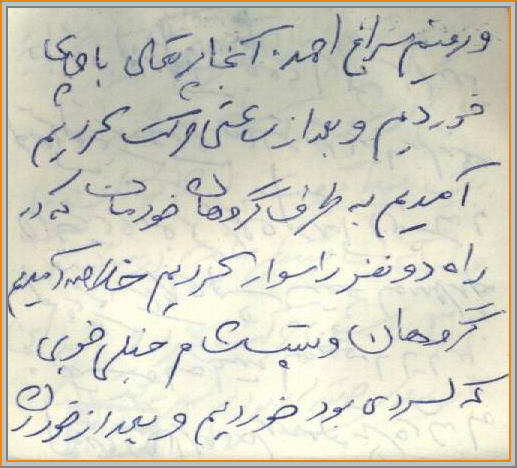 و رفتیم سراغ احمد. آنجا پرتقالی با چای
خوردیم و بعد از ساعتی حرکت کردیم
آمدیم به طرف گروهان خودمان که در
راه دو نفر را سوار کردیم خلاصه آمدیم
گروهان و شام خیلی خوبی
که بود خوردیم و بعد از خوردن